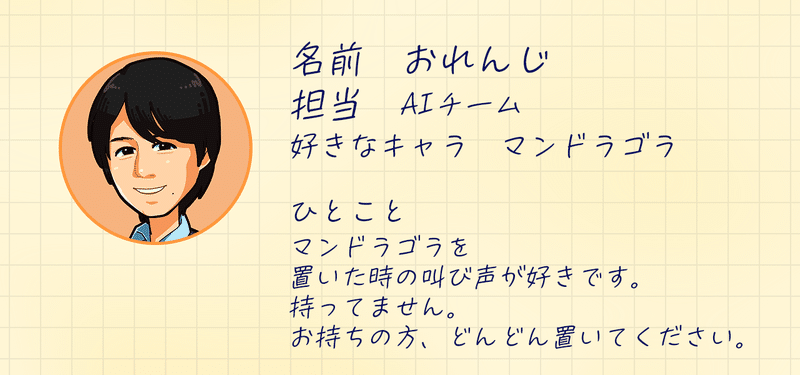 名前　おれんじ
担当　AIチーム
好きなキャラ　マンドラゴラ
ひとこと
マンドラゴラを
置いた時の叫び声が好きです。
持ってません。
お持ちの方、どんどん置いてください。